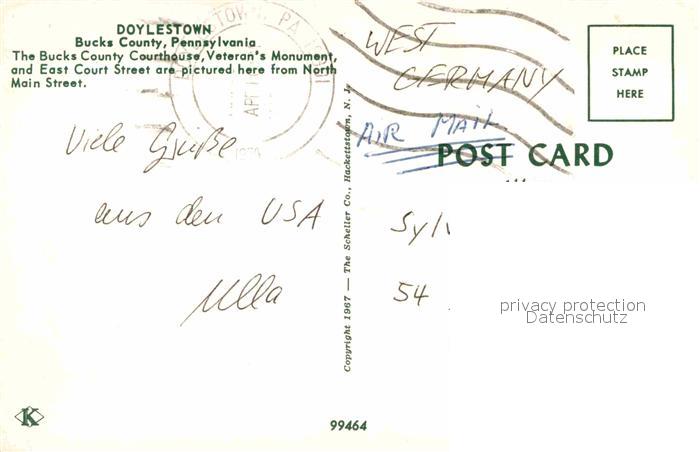 DOYLESTOWN
Bucks County, Pennsylvania
The Bucks County Courthouse, Veteran's Monument,
and East Court Street are pictured here from North
Main Street.
Viele Grüße
aus den USA
Ulla
Copyright 1967 — The Scheller Co., Hackettstown, N. J.
WEST
GERMANY
AIR MAIL
PLACE
STAMP
HERE
POST CARD
54
privacy protection
Datenschutz
K
99464